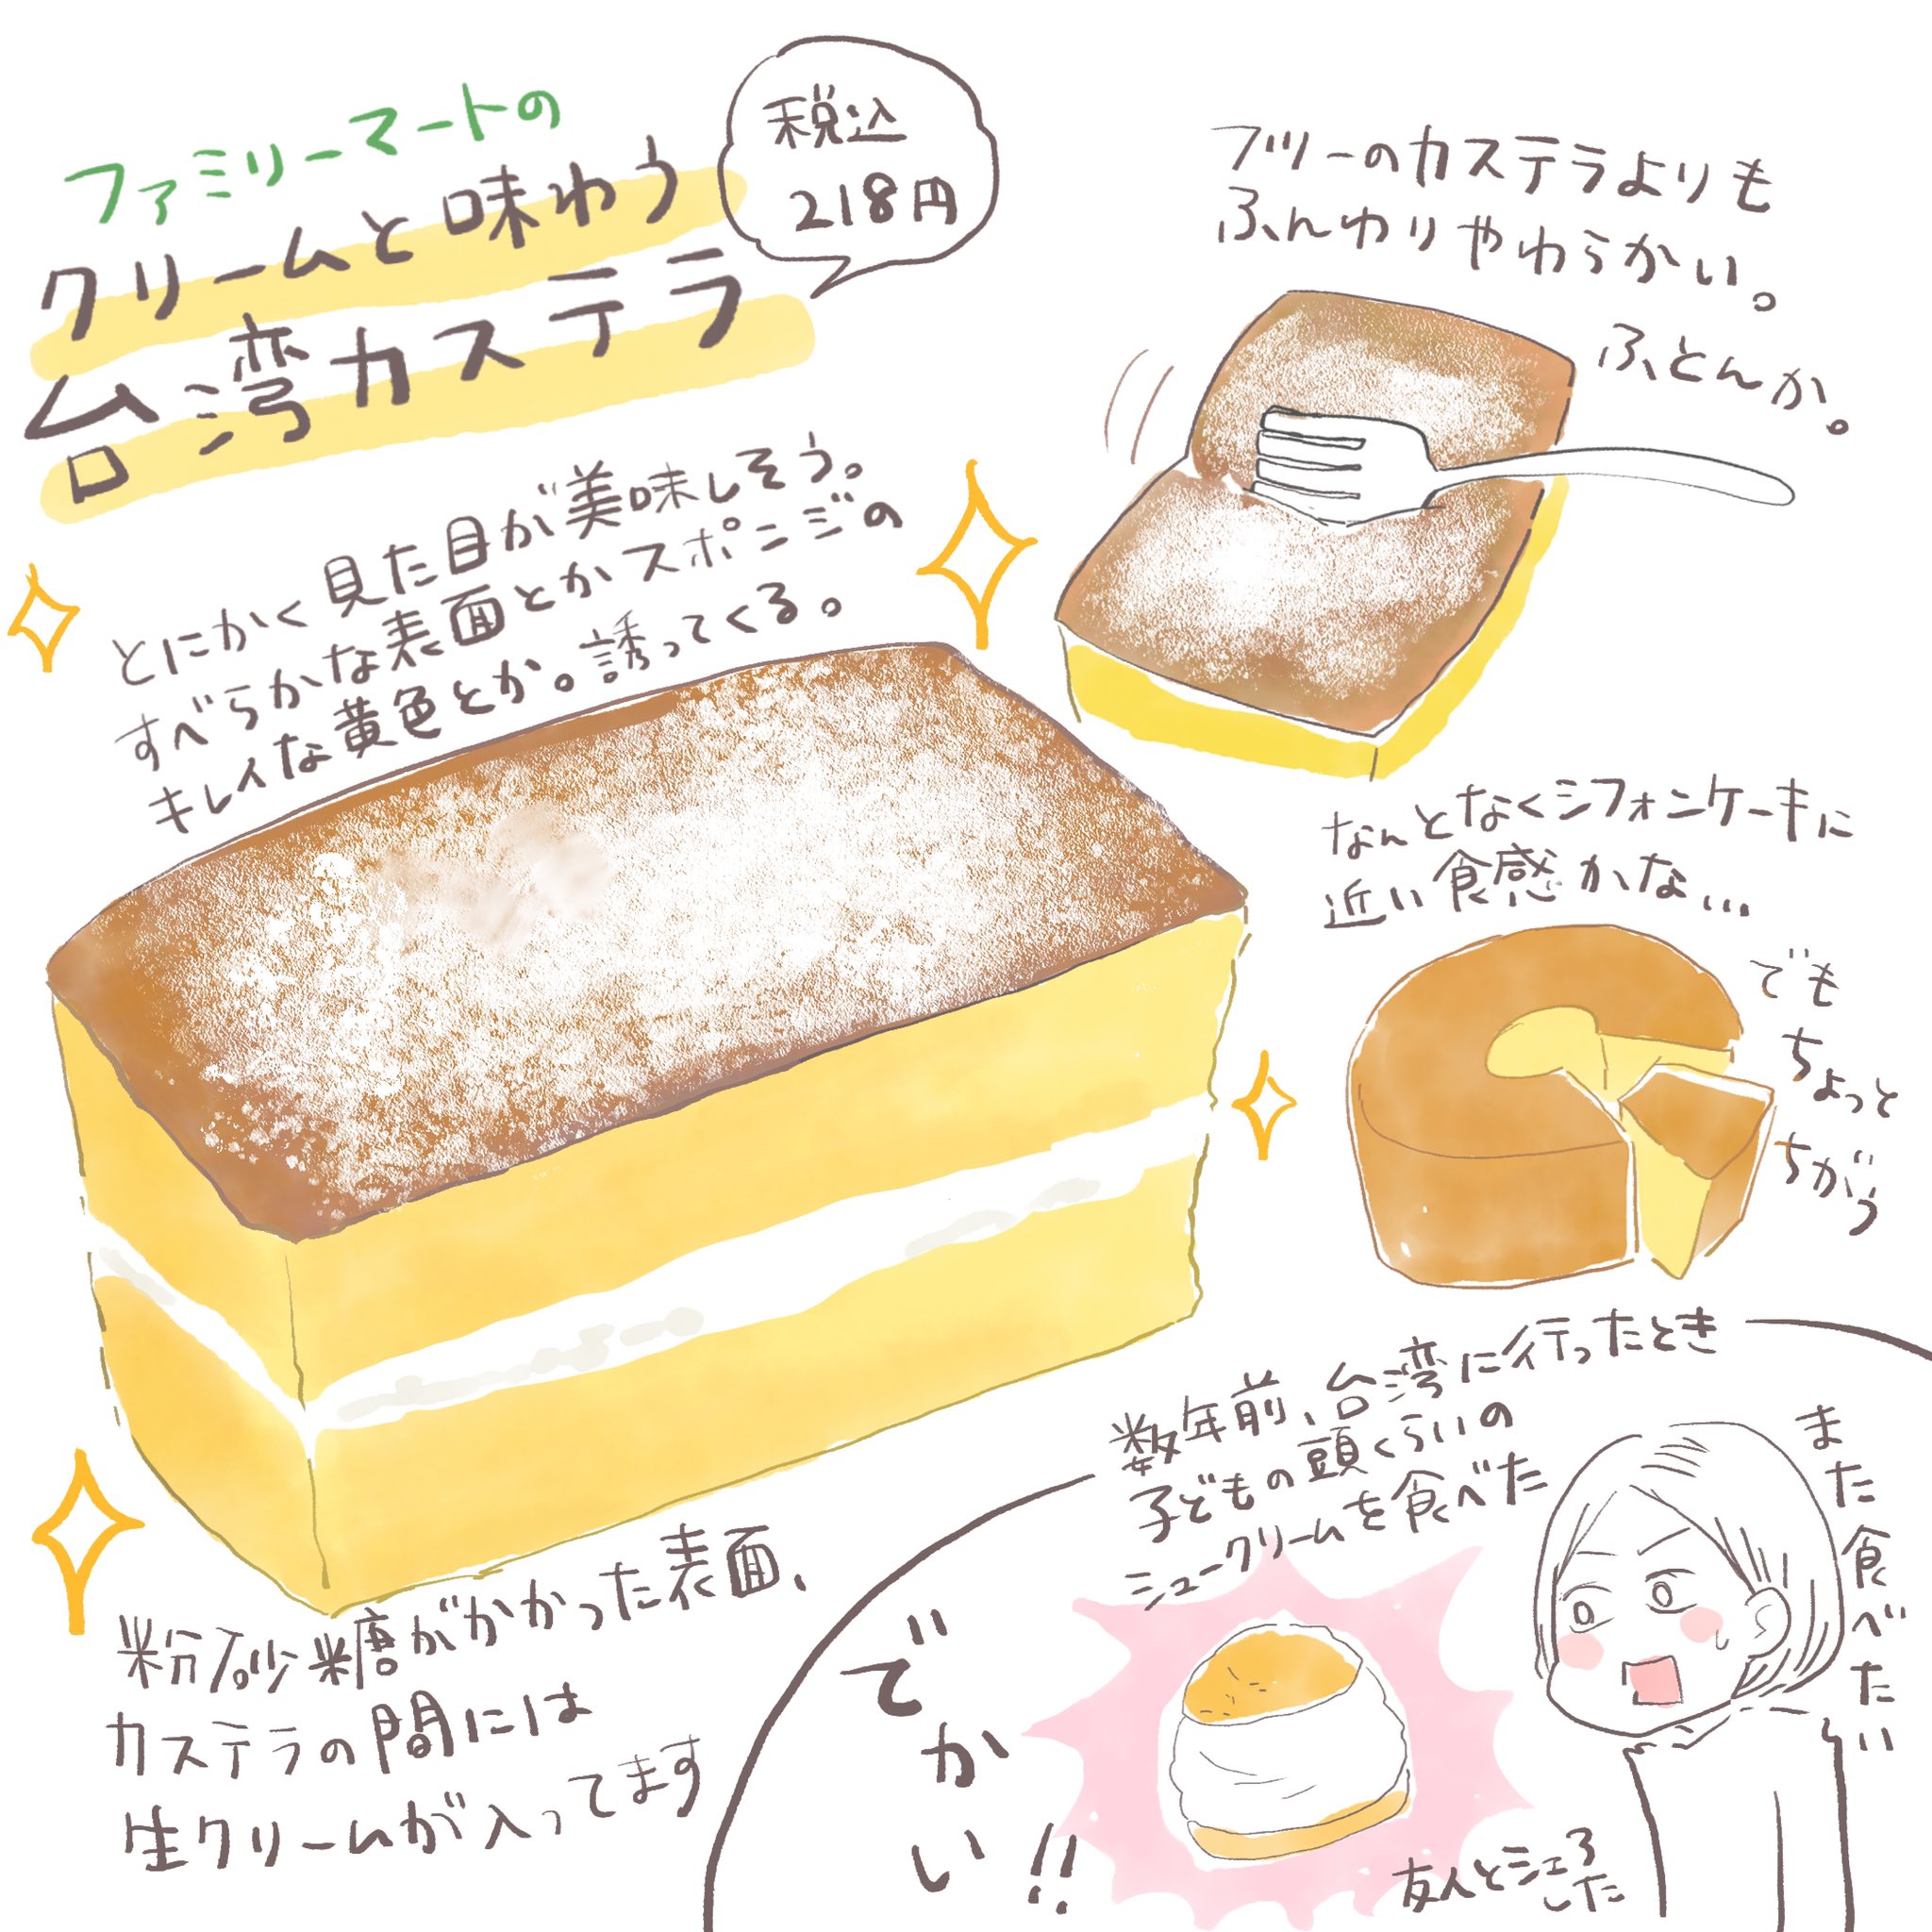 ファミリーマートの
クリームと味わう
台湾カステラ
税込
218円
とにかく見た目が美味しそう。
すべらかな表面とかスポンジの
キレイな黄色とか。誘ってくる。
フツーのカステラよりも
ふんわりやわらかい。
ふとんか。
なんとなくシフォンケーキに
近い食感かな…
でも
ちょっと
ちがう
粉砂糖がかかった表面、
カステラの間には
生クリームが入ってます
数年前、台湾に行ったとき
子どもの頭くらいの
シュークリームを食べた
でかい!!
また食べたい
友人とシェア
した